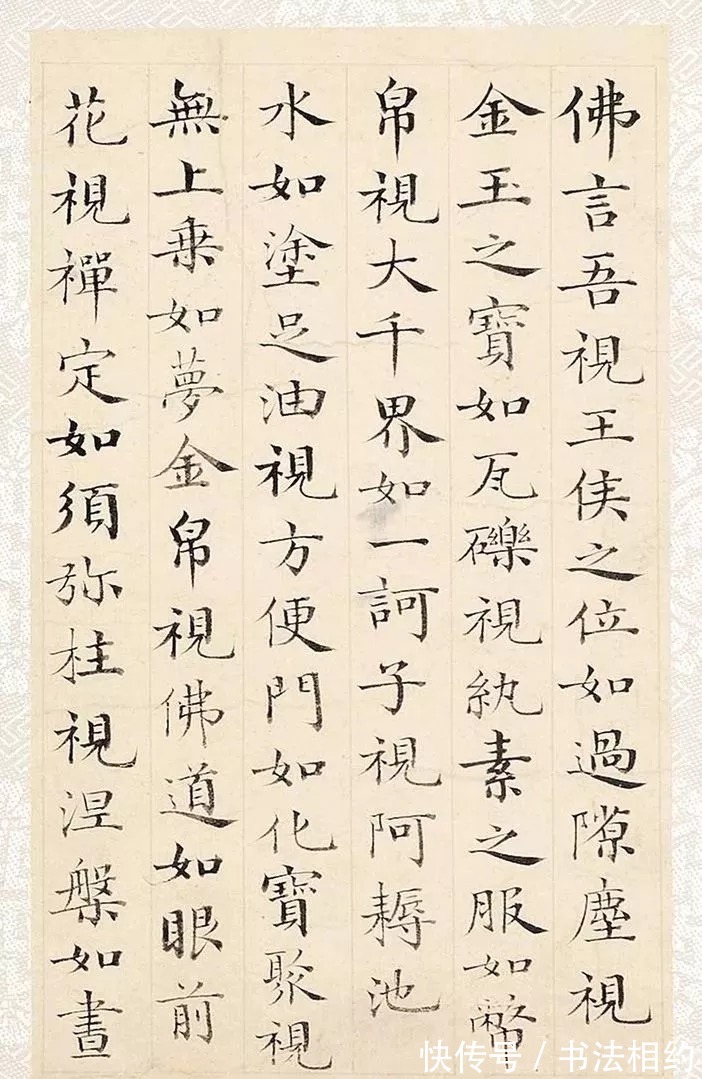 佛言吾視王侯之位如過隙塵視
金玉之寶如瓦礫視紈素之服如幣
帛視大千界如一訶子視阿耨池
水如塗足油視方便門如化寶聚視
無上乗如夢金帛視佛道如眼前
花視禪定如須弥柱視涅槃如晝
快传号/书法相约